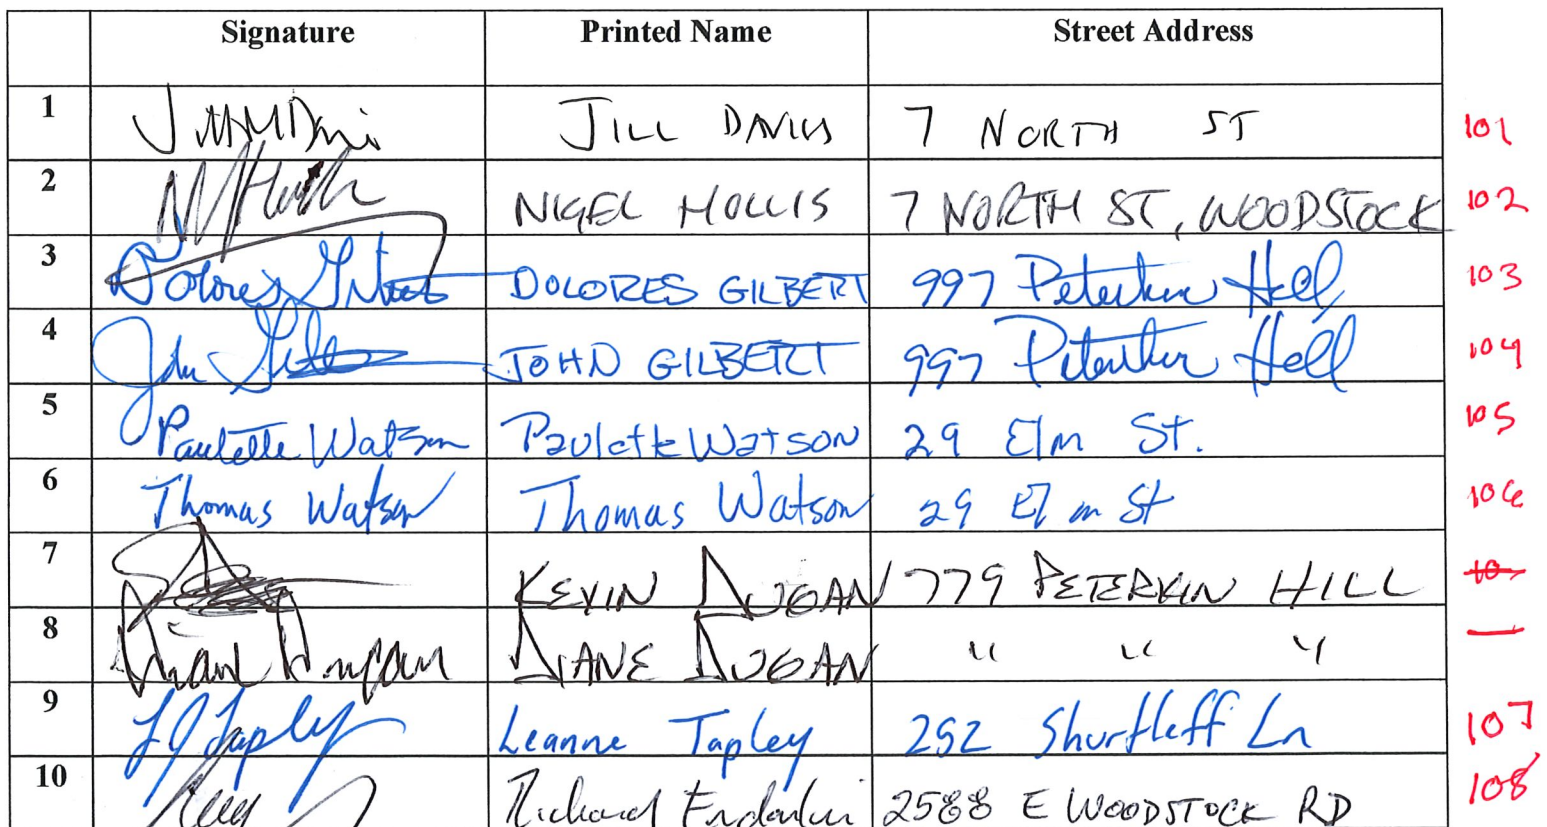 Signature Printed Name Street Address
1 JILL DAVIS 7 NORTH ST 101
2 NIGEL HOLLIS 7 NORTH ST, WOODSTOCK 102
3 Dolores Gilbert DOLORES GILBERT 997 Peterkin Hill 103
4 John Gilbert JOHN GILBERT 997 Peterkin Hill 104
5 Paulette Watson Paulette Watson 29 Elm St. 105
6 Thomas Watson Thomas Watson 29 Elm St 106
7 KEVIN DUGAN 779 PETERKIN HILL
8 Diane Dugan DIANE DUGAN " " " —
9 LJ Tapley Leanne Tapley 252 Shurtleff Ln 107
10 Richard 2588 E WOODSTOCK RD 108